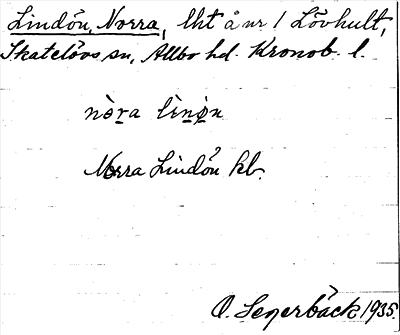 Lindön, Norra, lht å nr 1 Lövhult,
Skatelövs sn, Allbo hd. Kronob. l.
nòra lìnøn
Norra Lindön kb.
O. Segerbäck 1935.